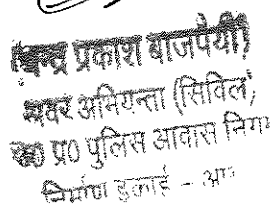 चन्द्र प्रकाश बाजपेयी)
अवर अभियन्ता (सिविल)
उ0 प्र0 पुलिस आवास निगम
निर्माण इकाई –